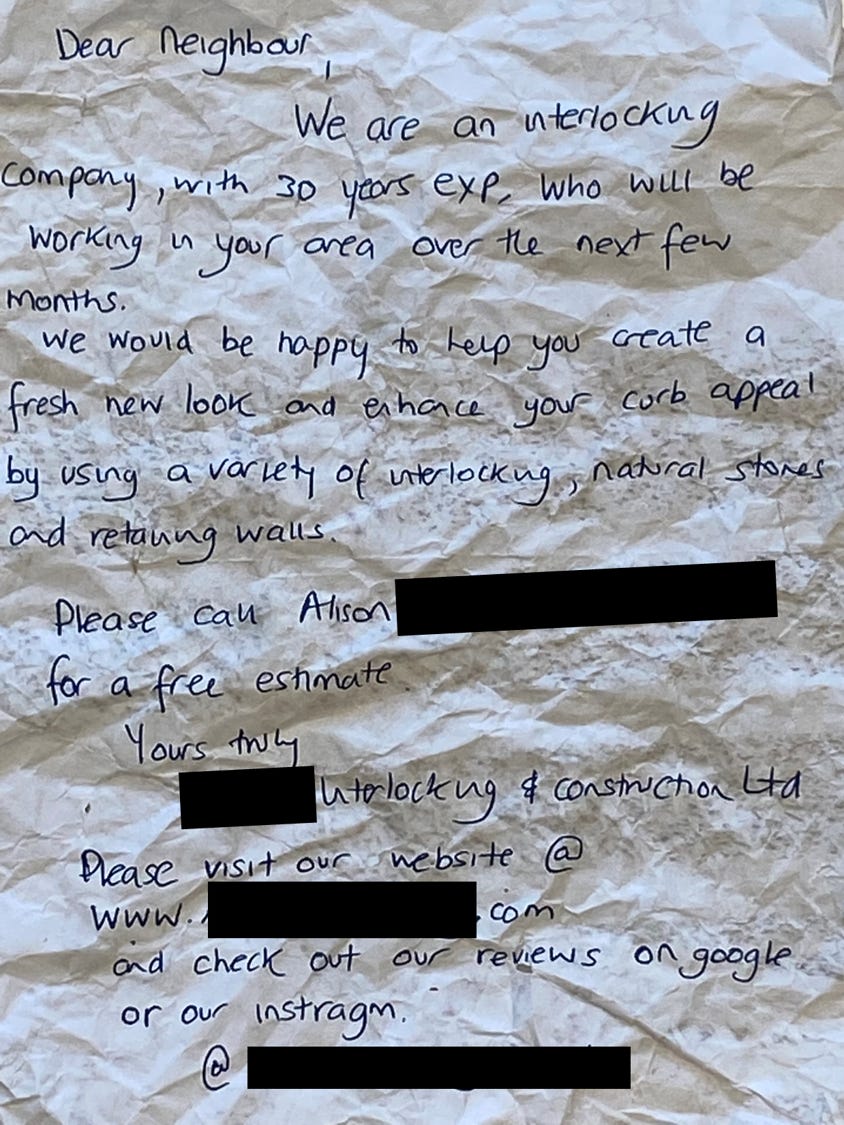 Dear Neighbour,
We are an interlocking
company, with 30 years exp, who will be
working in your area over the next few
months.
We would be happy to help you create a
fresh new look and enhance your curb appeal
by using a variety of interlocking, natural stones
and retaining walls.
Please call Alison
for a free estimate.
Yours truly
Interlocking & construction Ltd
Please visit our website @
www.
.com
and check out our reviews on google
or our instragm.
@